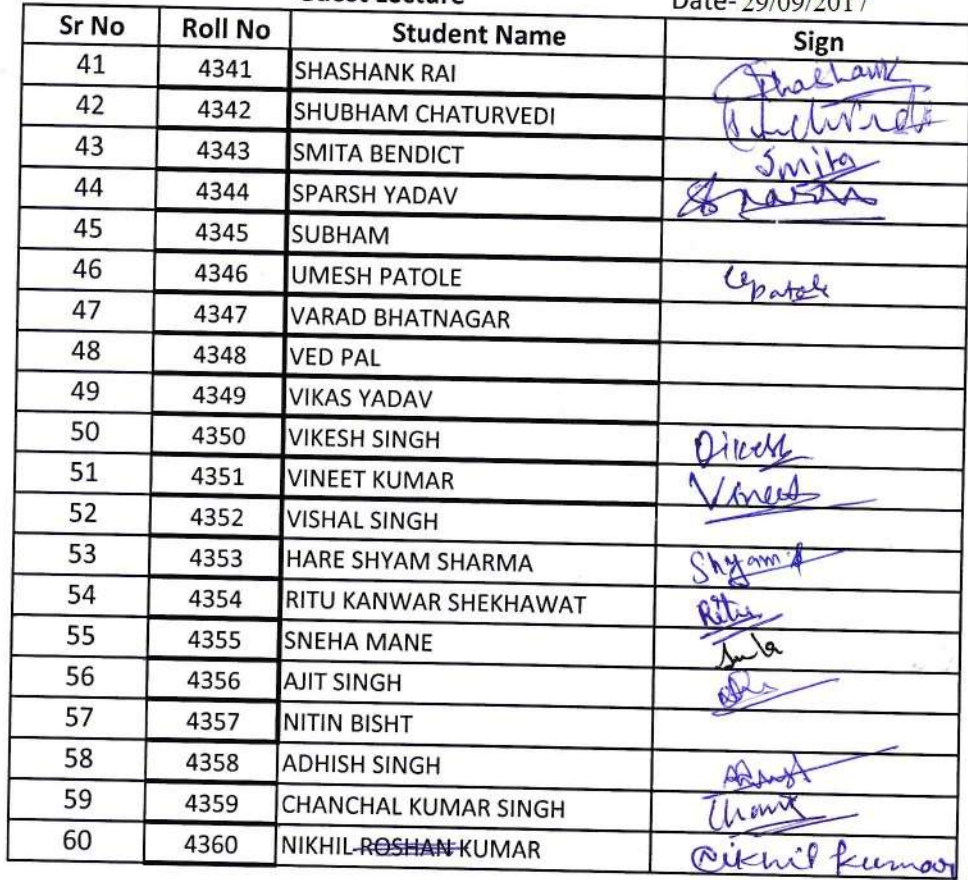 Guest Lecture Date- 29/09/2017
Sr No Roll No Student Name Sign
41 4341 SHASHANK RAI Shashank
42 4342 SHUBHAM CHATURVEDI
43 4343 SMITA BENDICT Smita
44 4344 SPARSH YADAV Sparsh
45 4345 SUBHAM
46 4346 UMESH PATOLE Upatole
47 4347 VARAD BHATNAGAR
48 4348 VED PAL
49 4349 VIKAS YADAV
50 4350 VIKESH SINGH Vikesh
51 4351 VINEET KUMAR Vineet
52 4352 VISHAL SINGH
53 4353 HARE SHYAM SHARMA Shyam
54 4354 RITU KANWAR SHEKHAWAT Ritu
55 4355 SNEHA MANE
56 4356 AJIT SINGH
57 4357 NITIN BISHT
58 4358 ADHISH SINGH
59 4359 CHANCHAL KUMAR SINGH
60 4360 NIKHIL ROSHAN KUMAR Nikhil Kumar